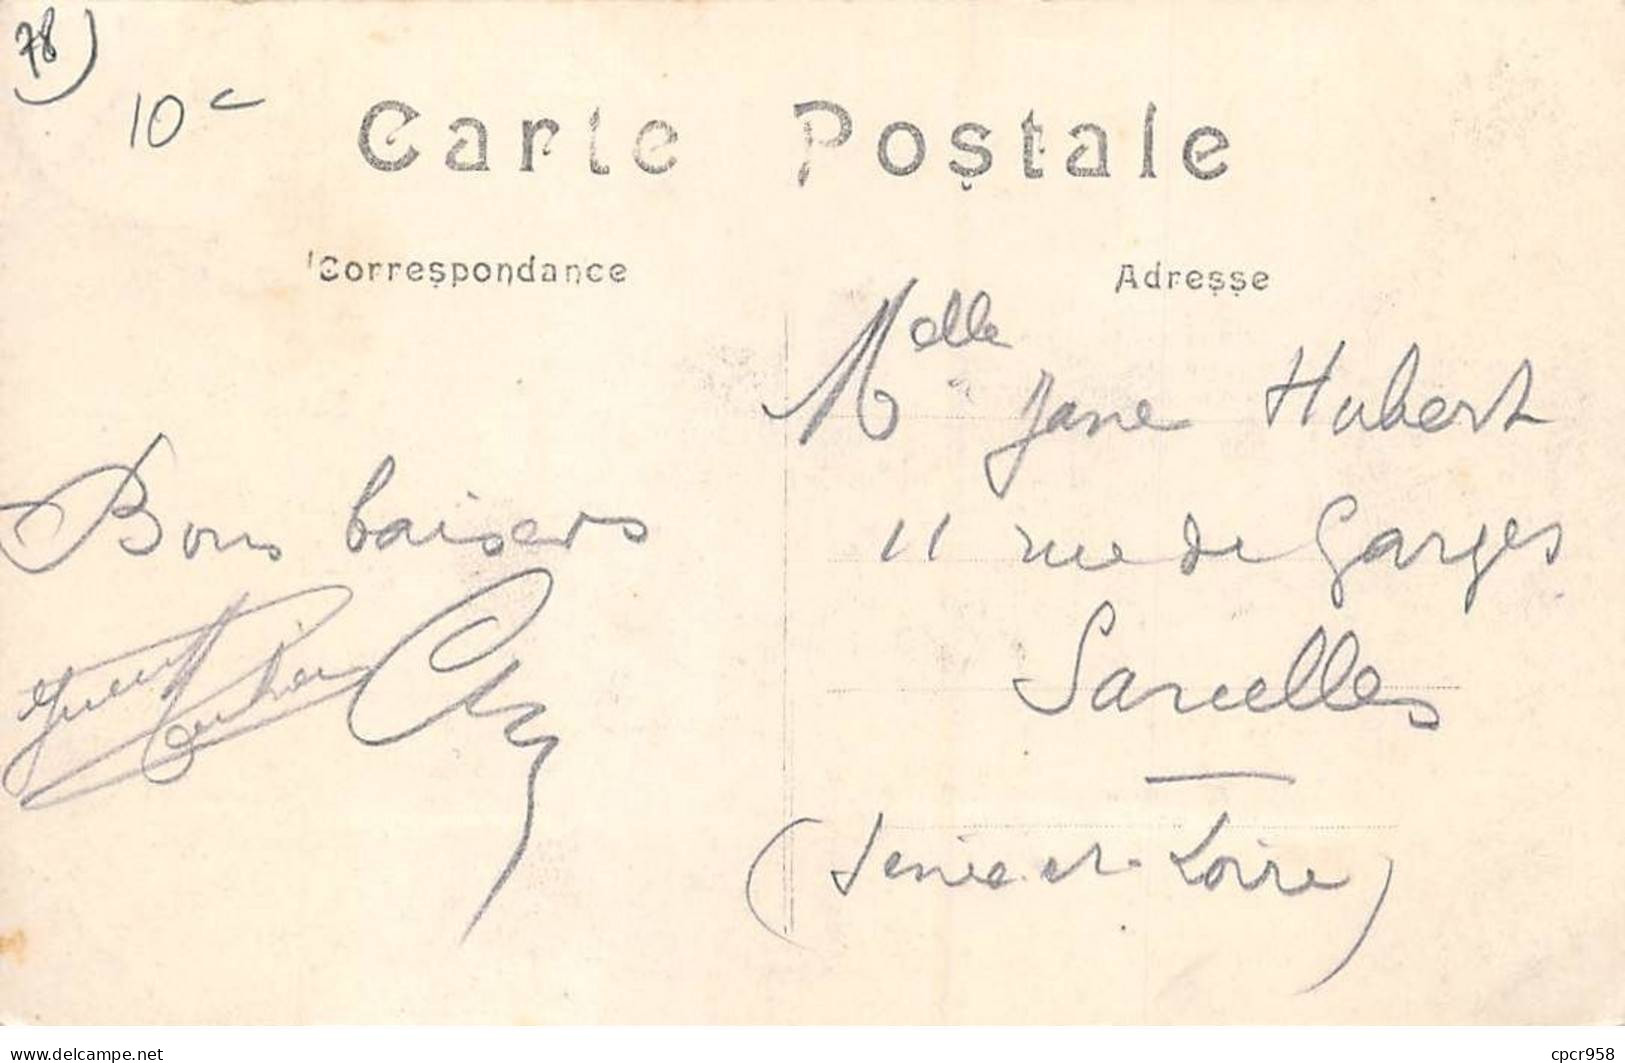 78
10 c
Carte Postale
Correspondance
Adresse
Melle Jane Hubert
11 rue de Garges
Sarcelles
(Seine et Loire)
Bons baisers
www.delcampe.net
cpcr958